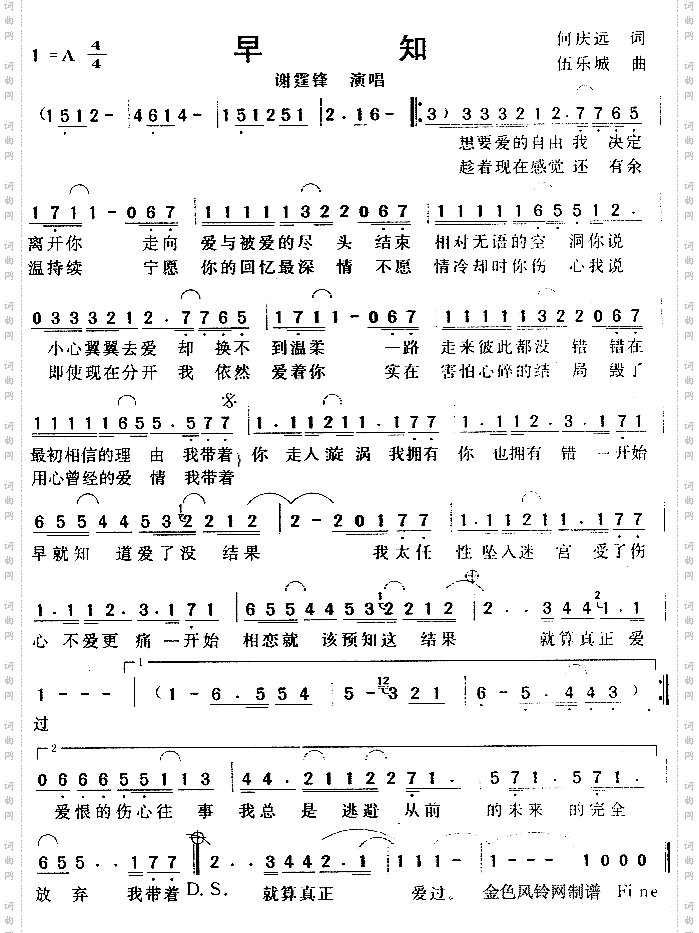 早 知
1=A 4/4
何庆远 词
伍乐城 曲
谢霆锋 演唱
(1512- 4614- 151251 2.16- 3) 333212.7765
想要爱的自由我 决定
趁着现在感觉还 有余
1711-067 11111322067 1111165512.
离开你 走向 爱与被爱的尽 头 结束 相对无语的空 洞你说
温持续 宁愿 你的回忆最深 情 不愿 情冷却时你伤 心我说
03333212.7765 1711-067 11111322067
小心翼翼去爱 却 换不 到温柔 一路 走来彼此都没 错 错在
即使现在分开 我 依然 爱着你 实在 害怕心碎的结 局 毁了
11111655.577 1.11211.177 1.112.3.171
最初相信的理 由 我带着 你 走人漩 涡 我拥有 你 也拥有 错 一开始
用心曾经的爱 情 我带着
65544532212 2-20177 1.11211.177
早就知 道爱了没 结果 我太任 性坠入迷 宫 受了伤
1.112.3.171 65544532212 2..34421.1
心 不爱更 痛 一开始 相恋就 该预知这 结果 就算真正 爱
1
1--- (1-6.554 5-12321 6-5.443)
过
2
0666655113 44.2112271. 571.571.
爱恨的伤心往 事 我总 是 逃避 从前 的未来 的完全
655..177 2..34422.1 111- --1000
放 弃 我带着 D.S. 就算真正 爱过。 金色风铃网制谱 Fine
词曲网